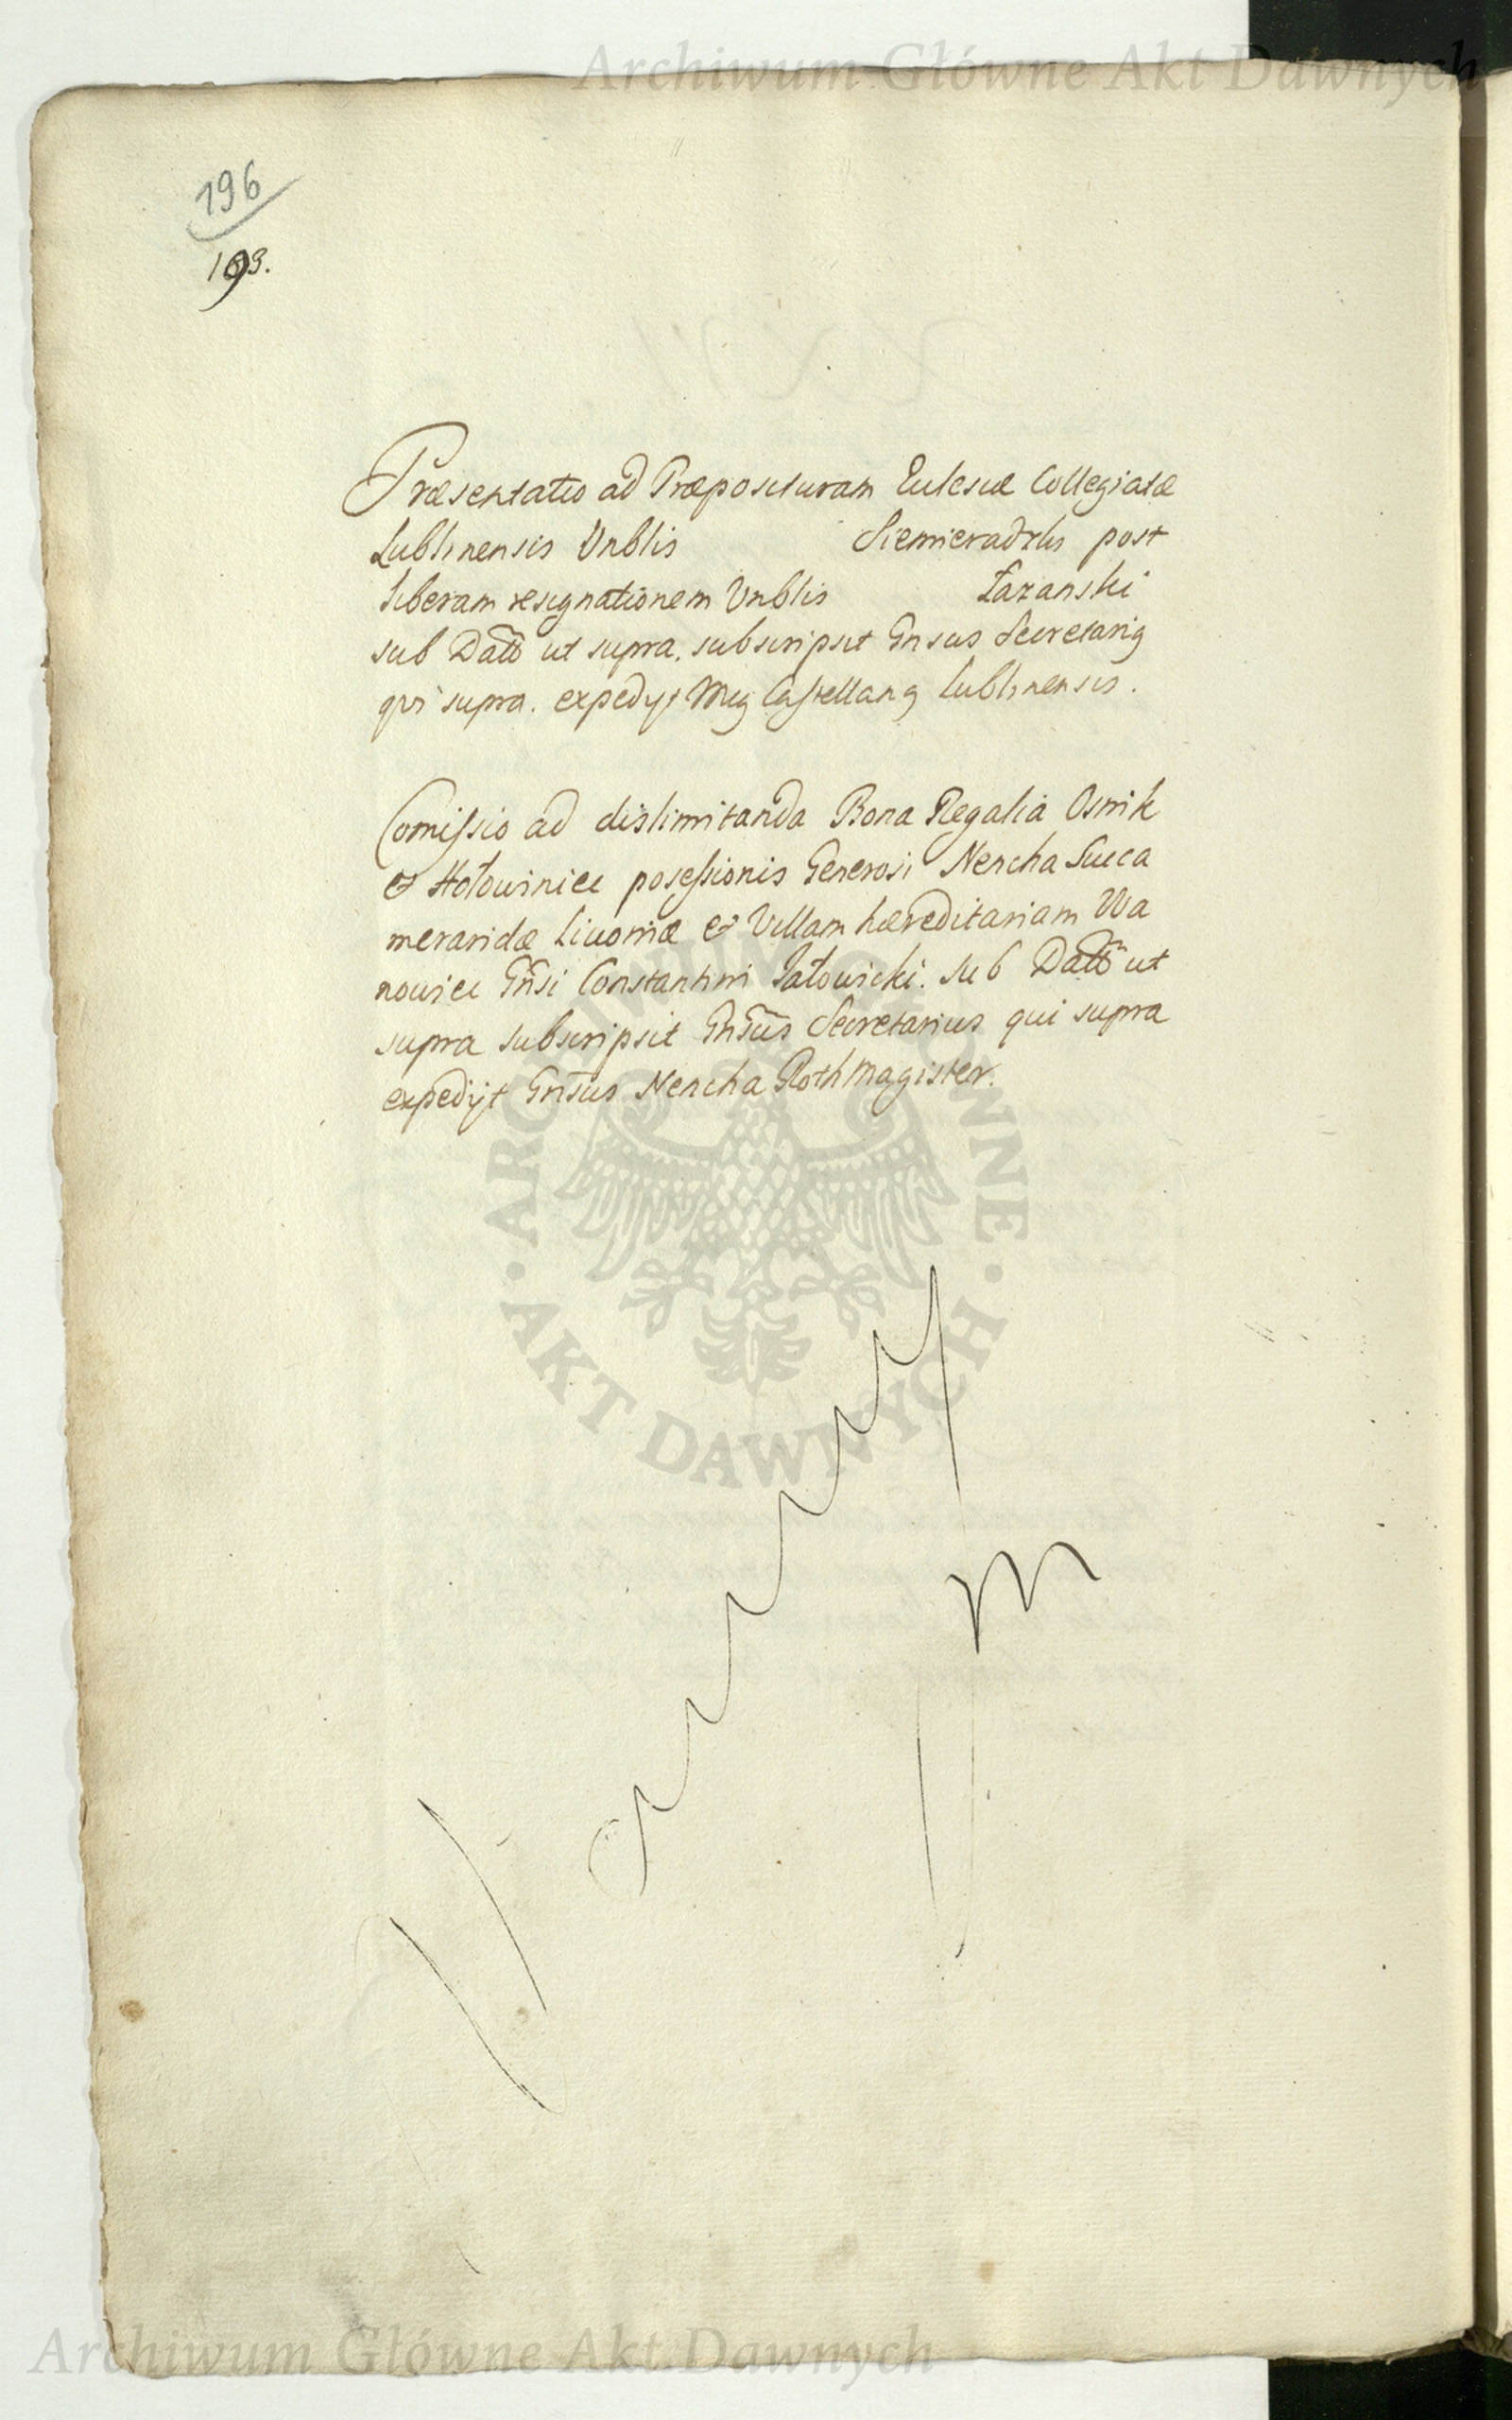 Archiwum Główne Akt Dawnych
196
193.
Præsentatio ad Præposituram Eclesiæ Collegiatæ
Lublinensis Vnblis Siemieradzki post
liberam resignationem Vnblis Łazanski
sub Datto ut supra. subscripsit Gnsus Secretariq
qvi supra. expedyt Mcq Castellanq Lublinensis.
Comissio ad dislimitanda Bona Regalia Osnik
& Hołowinice posessionis Generosi Nencha Succa
meraridæ Livoniæ & Villam hæreditariam Wa
nowice Gnsi Constantini Jałowicki. sub Datto ut
supra subscripsit Gnsus Secretarius qui supra
expedijt Gnsus Nencha Rothmagister.
ARCHIWUM GŁÓWNE
AKT DAWNYCH
Archiwum Główne Akt Dawnych